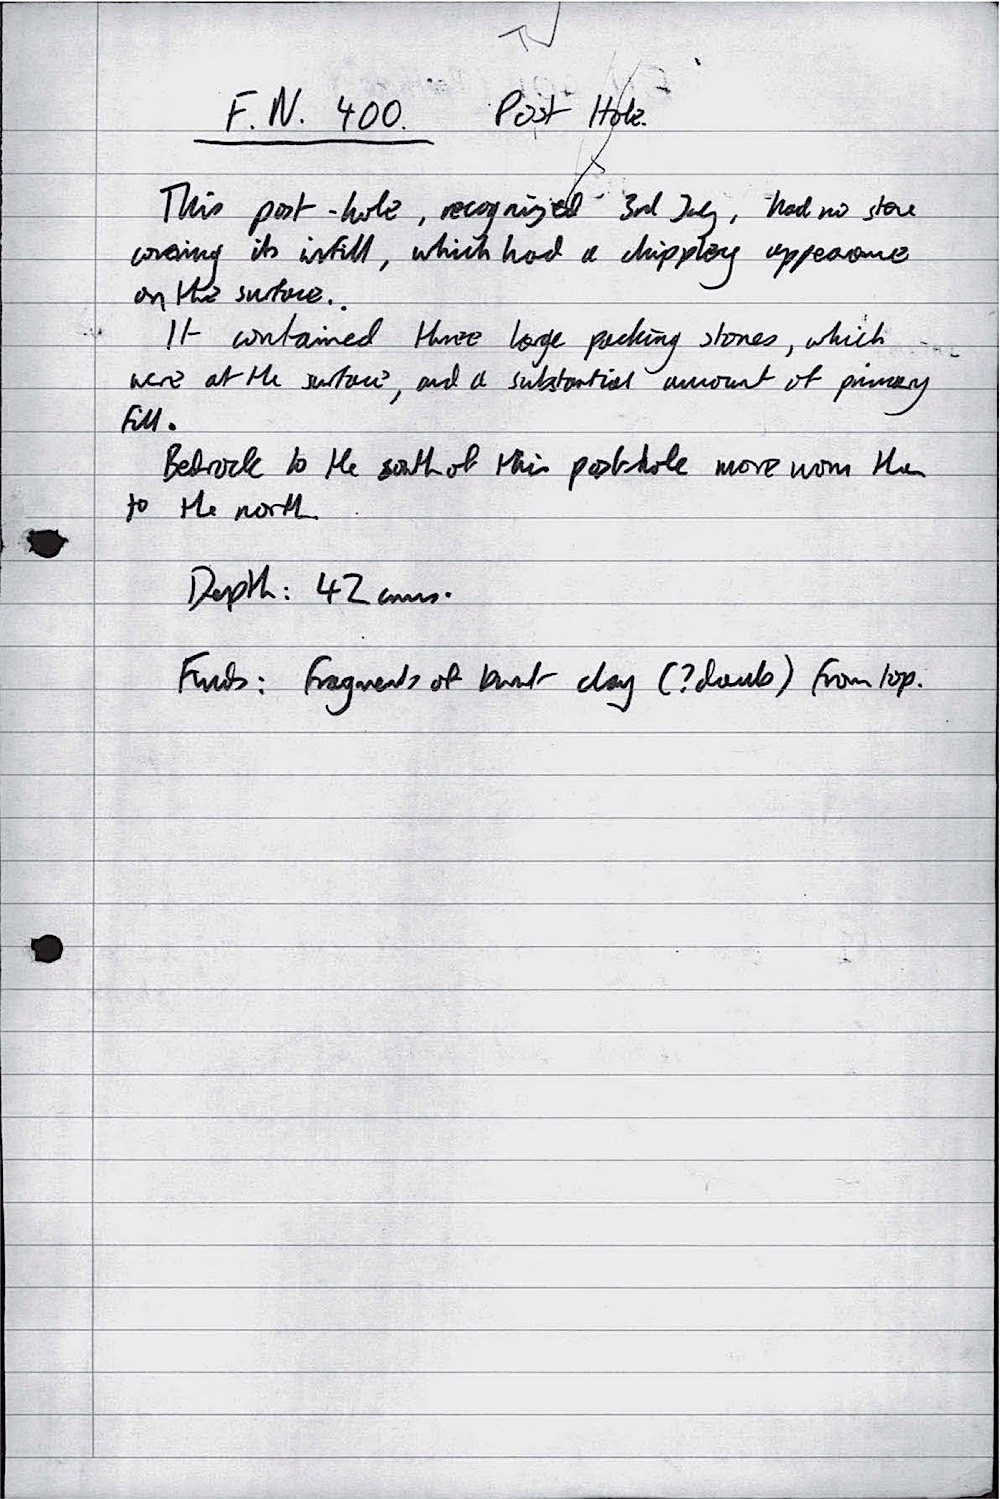 F.N. 400. Post Hole.
This post-hole, recognized 3rd July, had no stone
covering its infill, which had a chippley appearance
on the surface.
It contained three large packing stones, which
were at the surface, and a substantial amount of primary
fill.
Bedrock to the south of this posthole more worn than
to the north.
Depth: 42 cms.
Finds: fragments of burnt clay (?daub) from top.